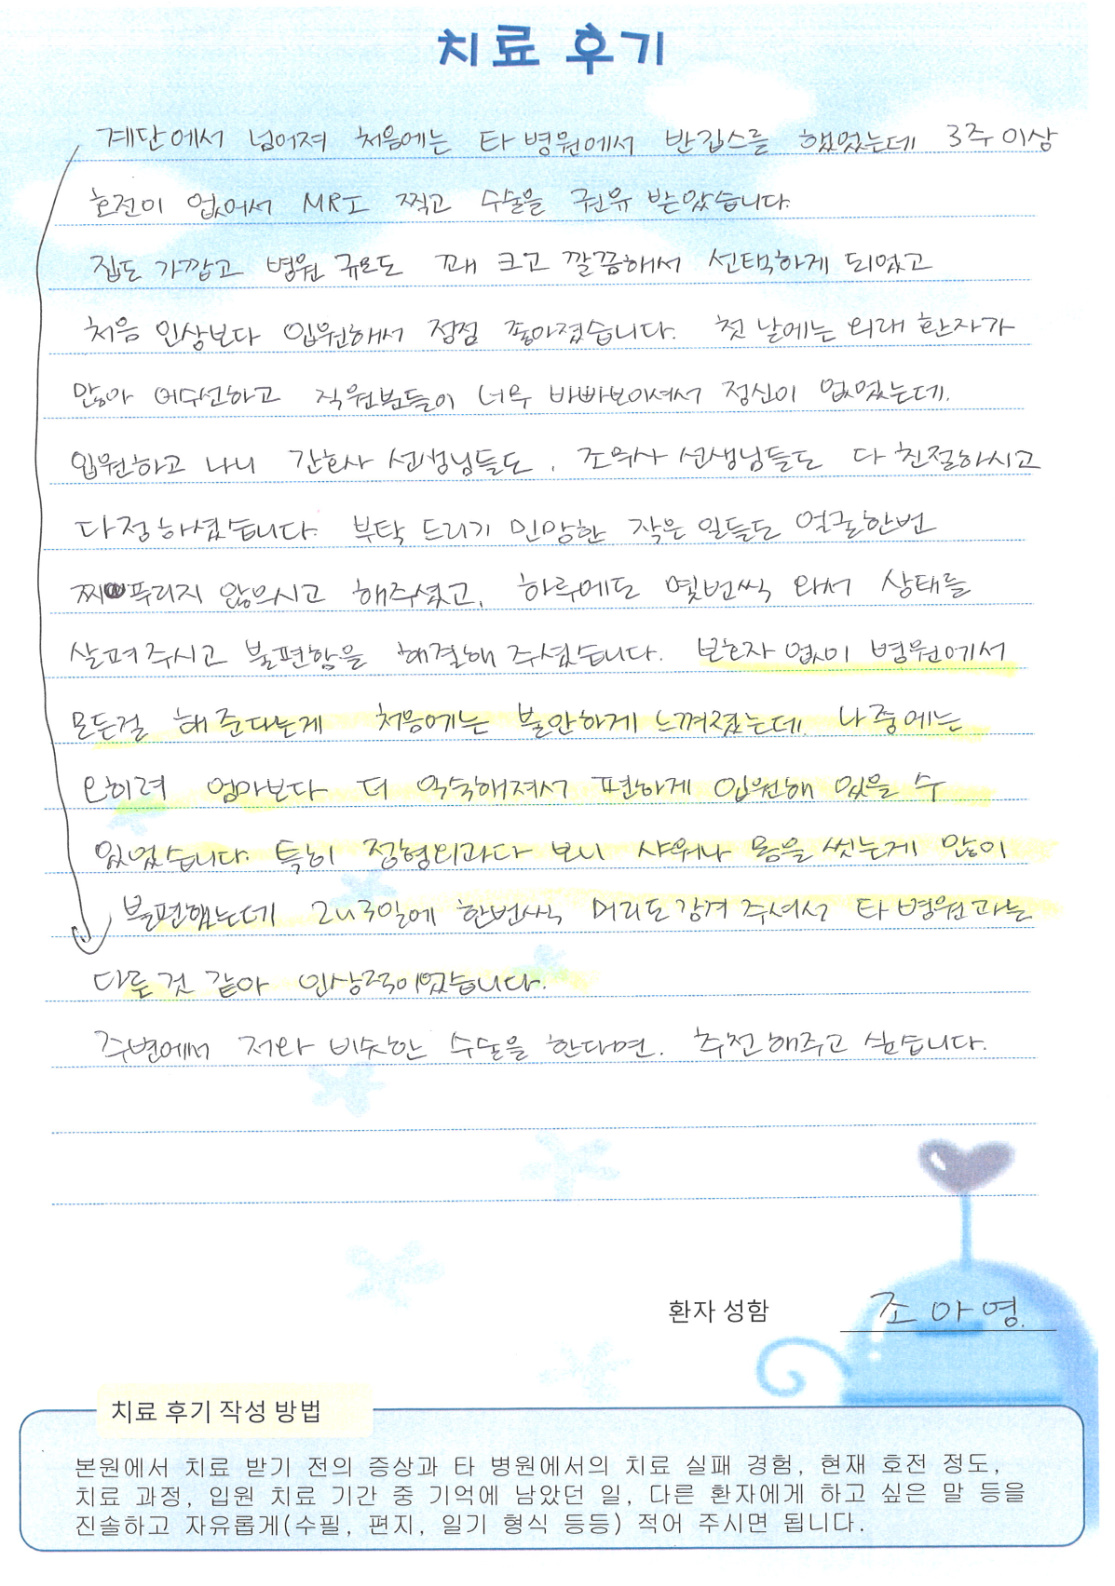 치료 후기
계단에서 넘어져 처음에는 타 병원에서 반깁스를 했었는데 3주 이상
호전이 없어서 MRI 찍고 수술을 권유 받았습니다.
집도 가깝고 병원 규모도 꽤 크고 깔끔해서 선택하게 되었고
처음 인상보다 입원해서 점점 좋아졌습니다. 첫 날에는 외래 환자가
많아 어수선하고 직원분들이 너무 바빠보이셔서 정신이 없었는데,
입원하고 나니 간호사 선생님들도, 조무사 선생님들도 다 친절하시고
다정하셨습니다. 부탁 드리기 민망한 작은 일들도 얼굴한번
찌푸리지 않으시고 해주셨고, 하루에도 몇번씩 와서 상태를
살펴주시고 불편함을 해결해 주셨습니다. 보호자 없이 병원에서
모든걸 해 준다는게 처음에는 불안하게 느껴졌는데, 나중에는
오히려 엄마보다 더 익숙해져서 편하게 입원해 있을 수
있었습니다. 특히 정형외과다 보니 샤워나 몸을 씻는게 많이
불편했는데 2~3일에 한번씩 머리도 감겨 주셔서 타 병원과는
다른 것 같아 인상적이었습니다.
주변에서 저와 비슷한 수술을 한다면, 추천해주고 싶습니다.
환자 성함 조아영
치료 후기 작성 방법
본원에서 치료 받기 전의 증상과 타 병원에서의 치료 실패 경험, 현재 호전 정도,
치료 과정, 입원 치료 기간 중 기억에 남았던 일, 다른 환자에게 하고 싶은 말 등을
진솔하고 자유롭게(수필, 편지, 일기 형식 등등) 적어 주시면 됩니다.